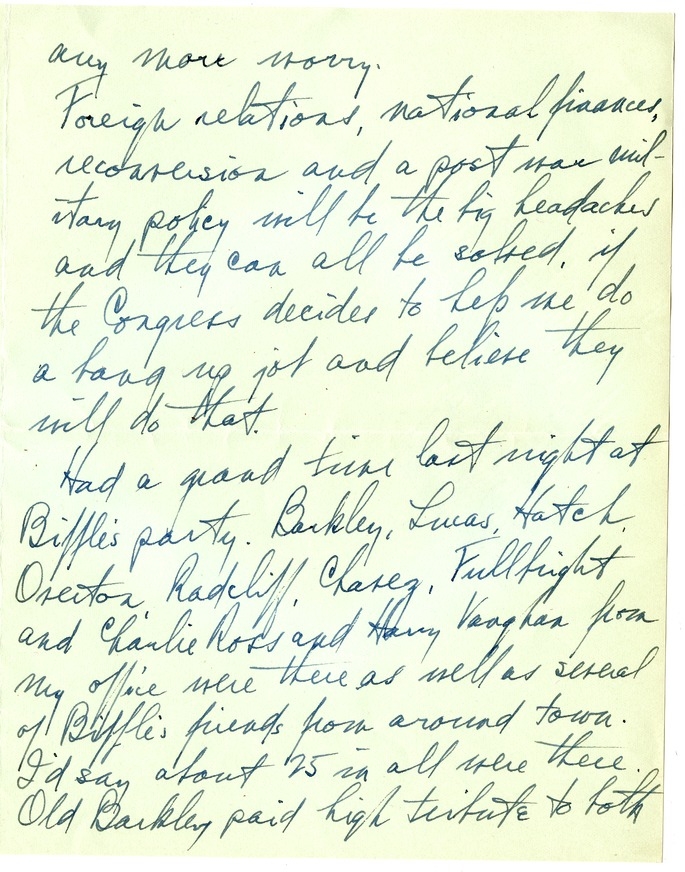 any more worry.
Foreign relations, national finances,
reconversion and a post war mil-
itary policy will be the big headaches
and they can all be solved, if
the Congress decides to help me do
a bang up job and believe they
will do that.
Had a grand time last night at
Biffle's party. Barkley, Lucas, Hatch,
Overton, Radcliff, Chavez, Fullbright
and Charlie Ross and Harry Vaughan from
my office were there as well as several
of Biffle's friends from around town.
I'd say about 25 in all were there.
Old Barkley paid high tribute to both